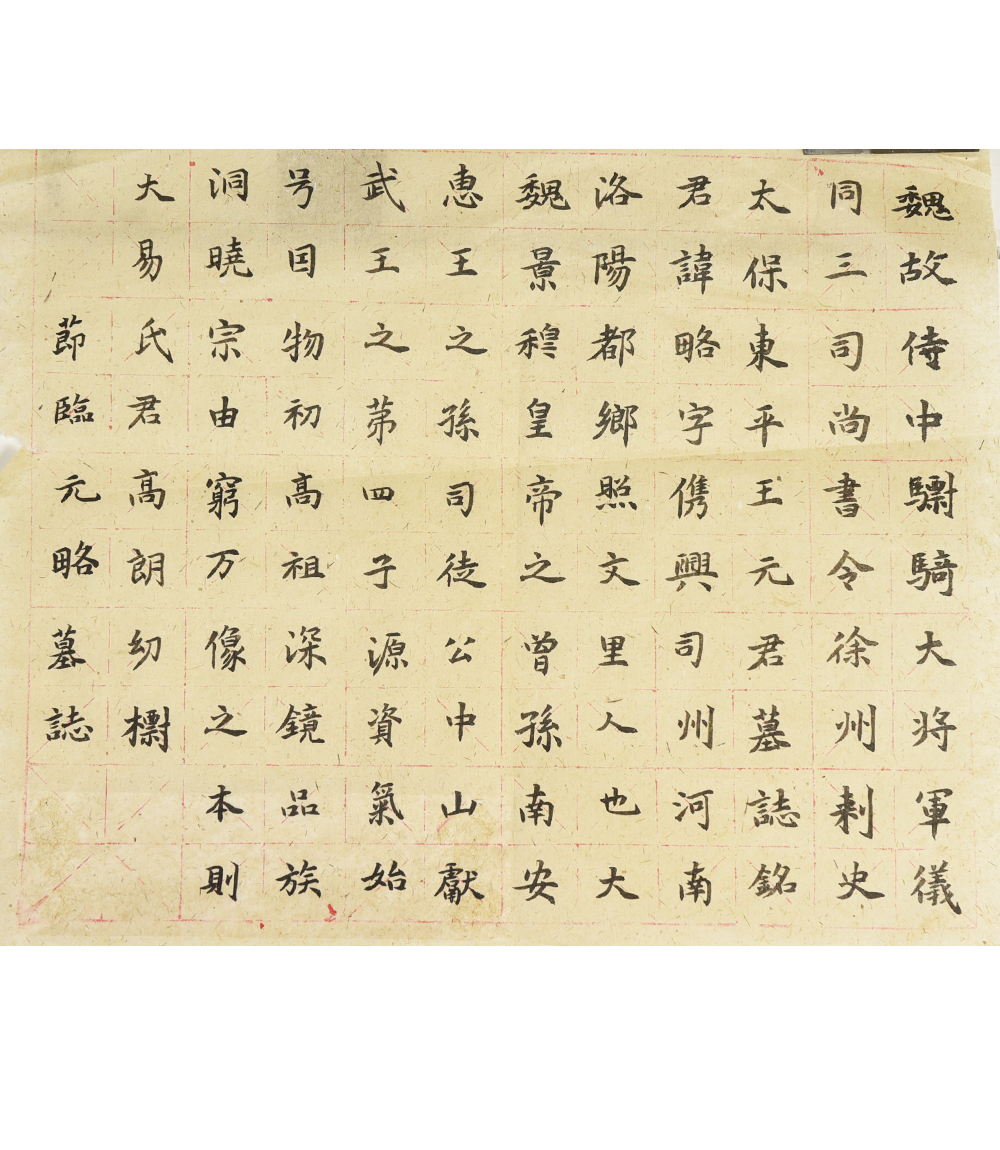 魏故侍中驃騎大将軍儀
同三司尚書令徐州剌史
太保東平王元君墓誌銘
君諱略字儁興司州河南
洛陽都鄉照文里人也大
魏景穆皇帝之曾孫南安
惠王之孫司徒公中山獻
武王之苐四子源資氣始
号囯物初高祖深鏡品族
洞曉宗由窮万像之本則
大易氏君高朗幼標
莭臨元略墓誌